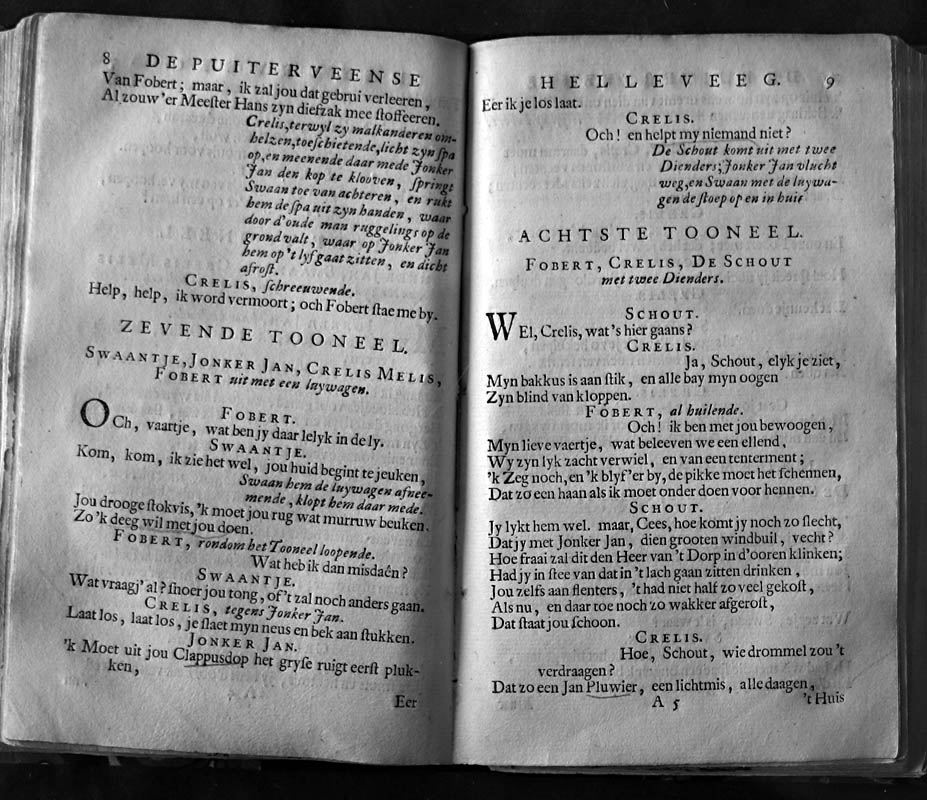 8 DE PUITERVEENSE
Van Fobert; maar, ik zal jou dat gebrui verleeren,
Al zouw'er Meester Hans zyn diefzak mee stoffeeren.
Crelis, terwyl zy malkanderen om-
helzen, toeschietende, licht zyn spa
op, en meenende daar mede Jonker
Jan den kop te klooven, springt
Swaan toe van achteren, en rukt
hem de spa uit zyn handen, waar
door d'oude man ruggelings op de
grond valt, waar op Jonker Jan
hem op 't lyf gaat zitten, en dicht
afrost.
CRELIS, schreeuwende.
Help, help, ik word vermoort; och Fobert stae me by.
ZEVENDE TOONEEL.
SWAANTJE, JONKER JAN, CRELIS MELIS,
FOBERT uit met een luywagen.
FOBERT.
OCh, vaartje, wat ben jy daar lelyk in de ly.
SWAANTJE.
Kom, kom, ik zie het wel, jou huid begint te jeuken,
Swaan hem de luywagen afnee-
mende, klopt hem daar mede.
Jou drooge stokvis, 'k moet jou rug wat murruw beuken.
Zo 'k deeg wil met jou doen.
FOBERT, rondom het Tooneel loopende.
Wat heb ik dan misdaên?
SWAANTJE.
Wat vraagj' al? snoer jou tong, of 't zal noch anders gaan.
CRELIS, tegens Jonker Jan.
Laat los, laat los, je slaet myn neus en bek aan stukken.
JONKER JAN.
'k Moet uit jou Clappusdop het gryse ruigt eerst pluk-
ken,
Eer
HELLEVEEG. 9
Eer ik je los laat.
CRELIS.
Och! en helpt my niemand niet?
De Schout komt uit met twee
Dienders; Jonker Jan vlucht
weg, en Swaan met de luywa-
gen de stoep op en in huis
ACHTSTE TOONEEL.
FOBERT, CRELIS, DE SCHOUT
met twee Dienders.
SCHOUT.
WEl, Crelis, wat's hier gaans?
CRELIS.
Ja, Schout, elyk je ziet,
Myn bakkus is aan stik, en alle bay myn oogen
Zyn blind van kloppen.
FOBERT, al huilende.
Och! ik ben met jou bewoogen,
Myn lieve vaertje, wat beleeven we een ellend,
Wy zyn lyk zacht verwiel, en van een tenterment;
'k Zeg noch, en 'k blyf'er by, de pikke moet het schennen,
Dat zo een haan als ik moet onder doen voor hennen.
SCHOUT.
Jy lykt hem wel. maar, Cees, hoe komt jy noch zo slecht,
Dat jy met Jonker Jan, dien grooten windbuil, vecht?
Hoe fraai zal dit den Heer van 't Dorp in d'ooren klinken;
Had jy in stee van dat in 't lach gaan zitten drinken,
Jou zelfs aan slenters, 't had niet half zo veel gekost,
Als nu, en daar toe noch zo wakker afgerost,
Dat staat jou schoon.
CRELIS.
Hoe, Schout, wie drommel zou 't
verdraagen?
Dat zo een Jan Pluwier, een lichtmis, alle daagen,
A 5 't Huis